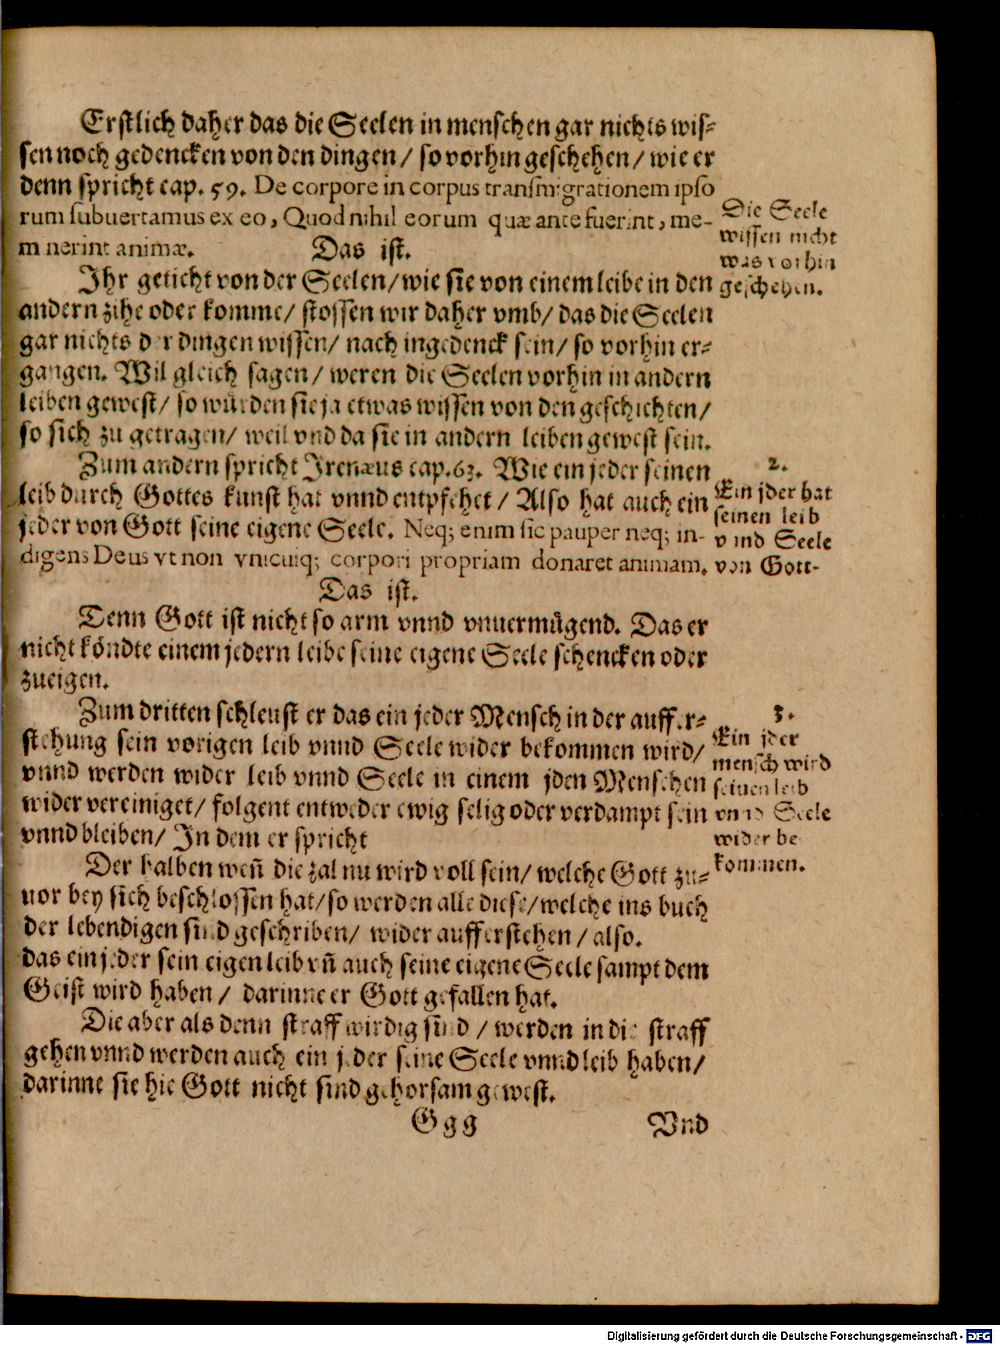 Erstlich daher das die Seelen in menschen gar nichts wis⸗
sen noch gedencken von den dingen / so vorhin geschehen / wie er
denn spricht cap. 59. De corpore in corpus transmigrationem ipso
rum subuertamus ex eo, Quod nihil eorum quæ ante fuerint, me-
minerint animæ. Das ist.
Ihr geticht von der Seelen / wie sie von einem leibe in den
andern zihe oder komme / stossen wir daher vmb / das die Seelen
gar nichts der dingen wissen / nach ingedenck sein / so vorhin er⸗
gangen. Wil gleich sagen / weren die Seelen vorhin in andern
leiben gewest / so würden sie ja etwas wissen von den geschichten /
so sich zu getragen / weil vnd da sie in andern leiben gewest sein.
Die Seele
wissen nicht
was vorhin
geschehen.
Zum andern spricht Irenæus cap. 63. Wie ein jeder seinen
leib durch Gottes kunst hat vnnd entpfehet / Also hat auch ein
jeder von Gott seine eigene Seele. Neq; enim sic pauper neq; in-
digens Deus vt non vnicuiq; corpori propriam donaret animam.
Das ist.
2.
Ein jder hat
seinen leib
vnnd Seele
von Gott-
Denn Gott ist nicht so arm vnnd vnuermügend. Das er
nicht köndte einem jedern leibe seine eigene Seele schencken oder
zueigen.
Zum dritten schleust er das ein jeder Mensch in der auffer⸗
stehung sein vorigen leib vnnd Seele wider bekommen wird /
vnnd werden wider leib vnnd Seele in einem jden Menschen
wider vereiniget / folgent entweder ewig selig oder verdampt sein
vnnd bleiben / In dem er spricht
3.
Ein jder
mensch wird
seinen leib
vnnd Seele
wider be
kommen.
Der halben weñ die zal nu wird voll sein / welche Gott zu⸗
uor bey sich beschlossen hat / so werden alle diese / welche ins buch
der lebendigen sind geschriben / wider aufferstehen / also.
das ein jeder sein eigen leib vñ auch seine eigene Seele sampt dem
Geist wird haben / darinne er Gott gefallen hat.
Die aber als denn straff wirdig sind / werden in die straff
gehen vnnd werden auch ein jeder seine Seele vnnd leib haben /
darinne sie hie Gott nicht sind gehorsam gewest.
Ggg Vnd
Digitalisierung gefördert durch die Deutsche Forschungsgemeinschaft - DFG